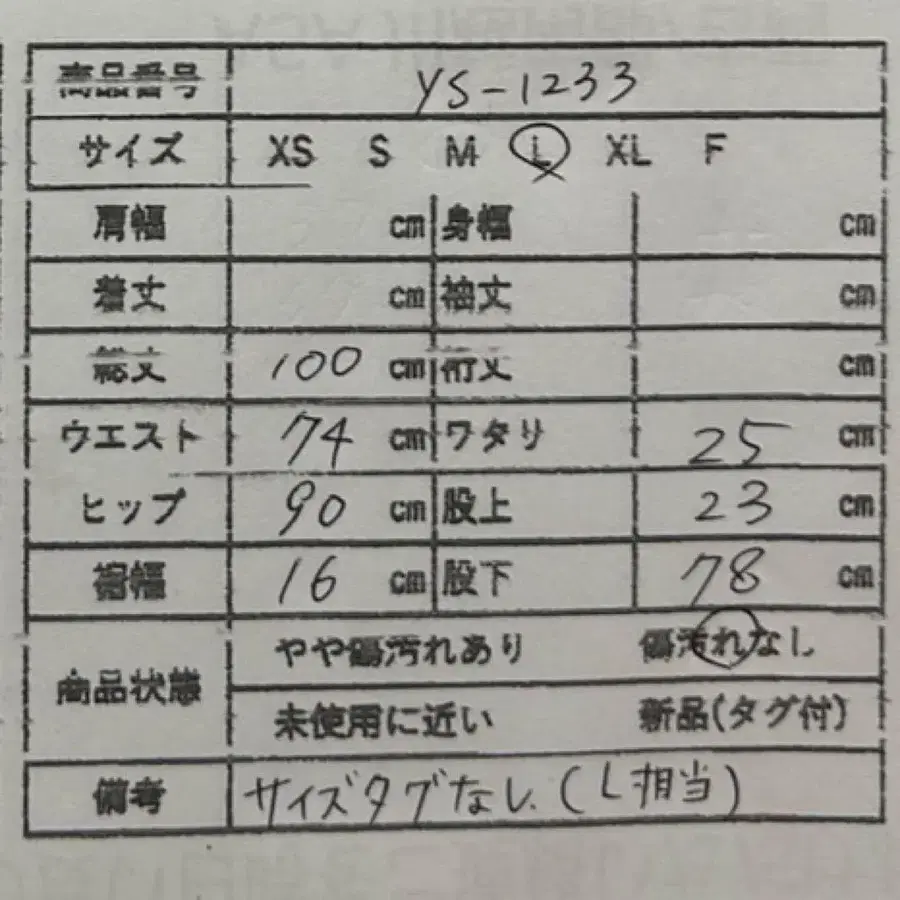 商品番号 YS-1233
サイズ XS S M L XL F
肩幅 cm 身幅 cm
着丈 cm 袖丈 cm
総丈 100 cm 裄丈 cm
ウエスト 74 cm ワタリ 25 cm
ヒップ 90 cm 股上 23 cm
裾幅 16 cm 股下 78 cm
商品状態 やや傷汚れあり 傷汚れなし
未使用に近い 新品(タグ付)
備考 サイズタグなし.(L相当)